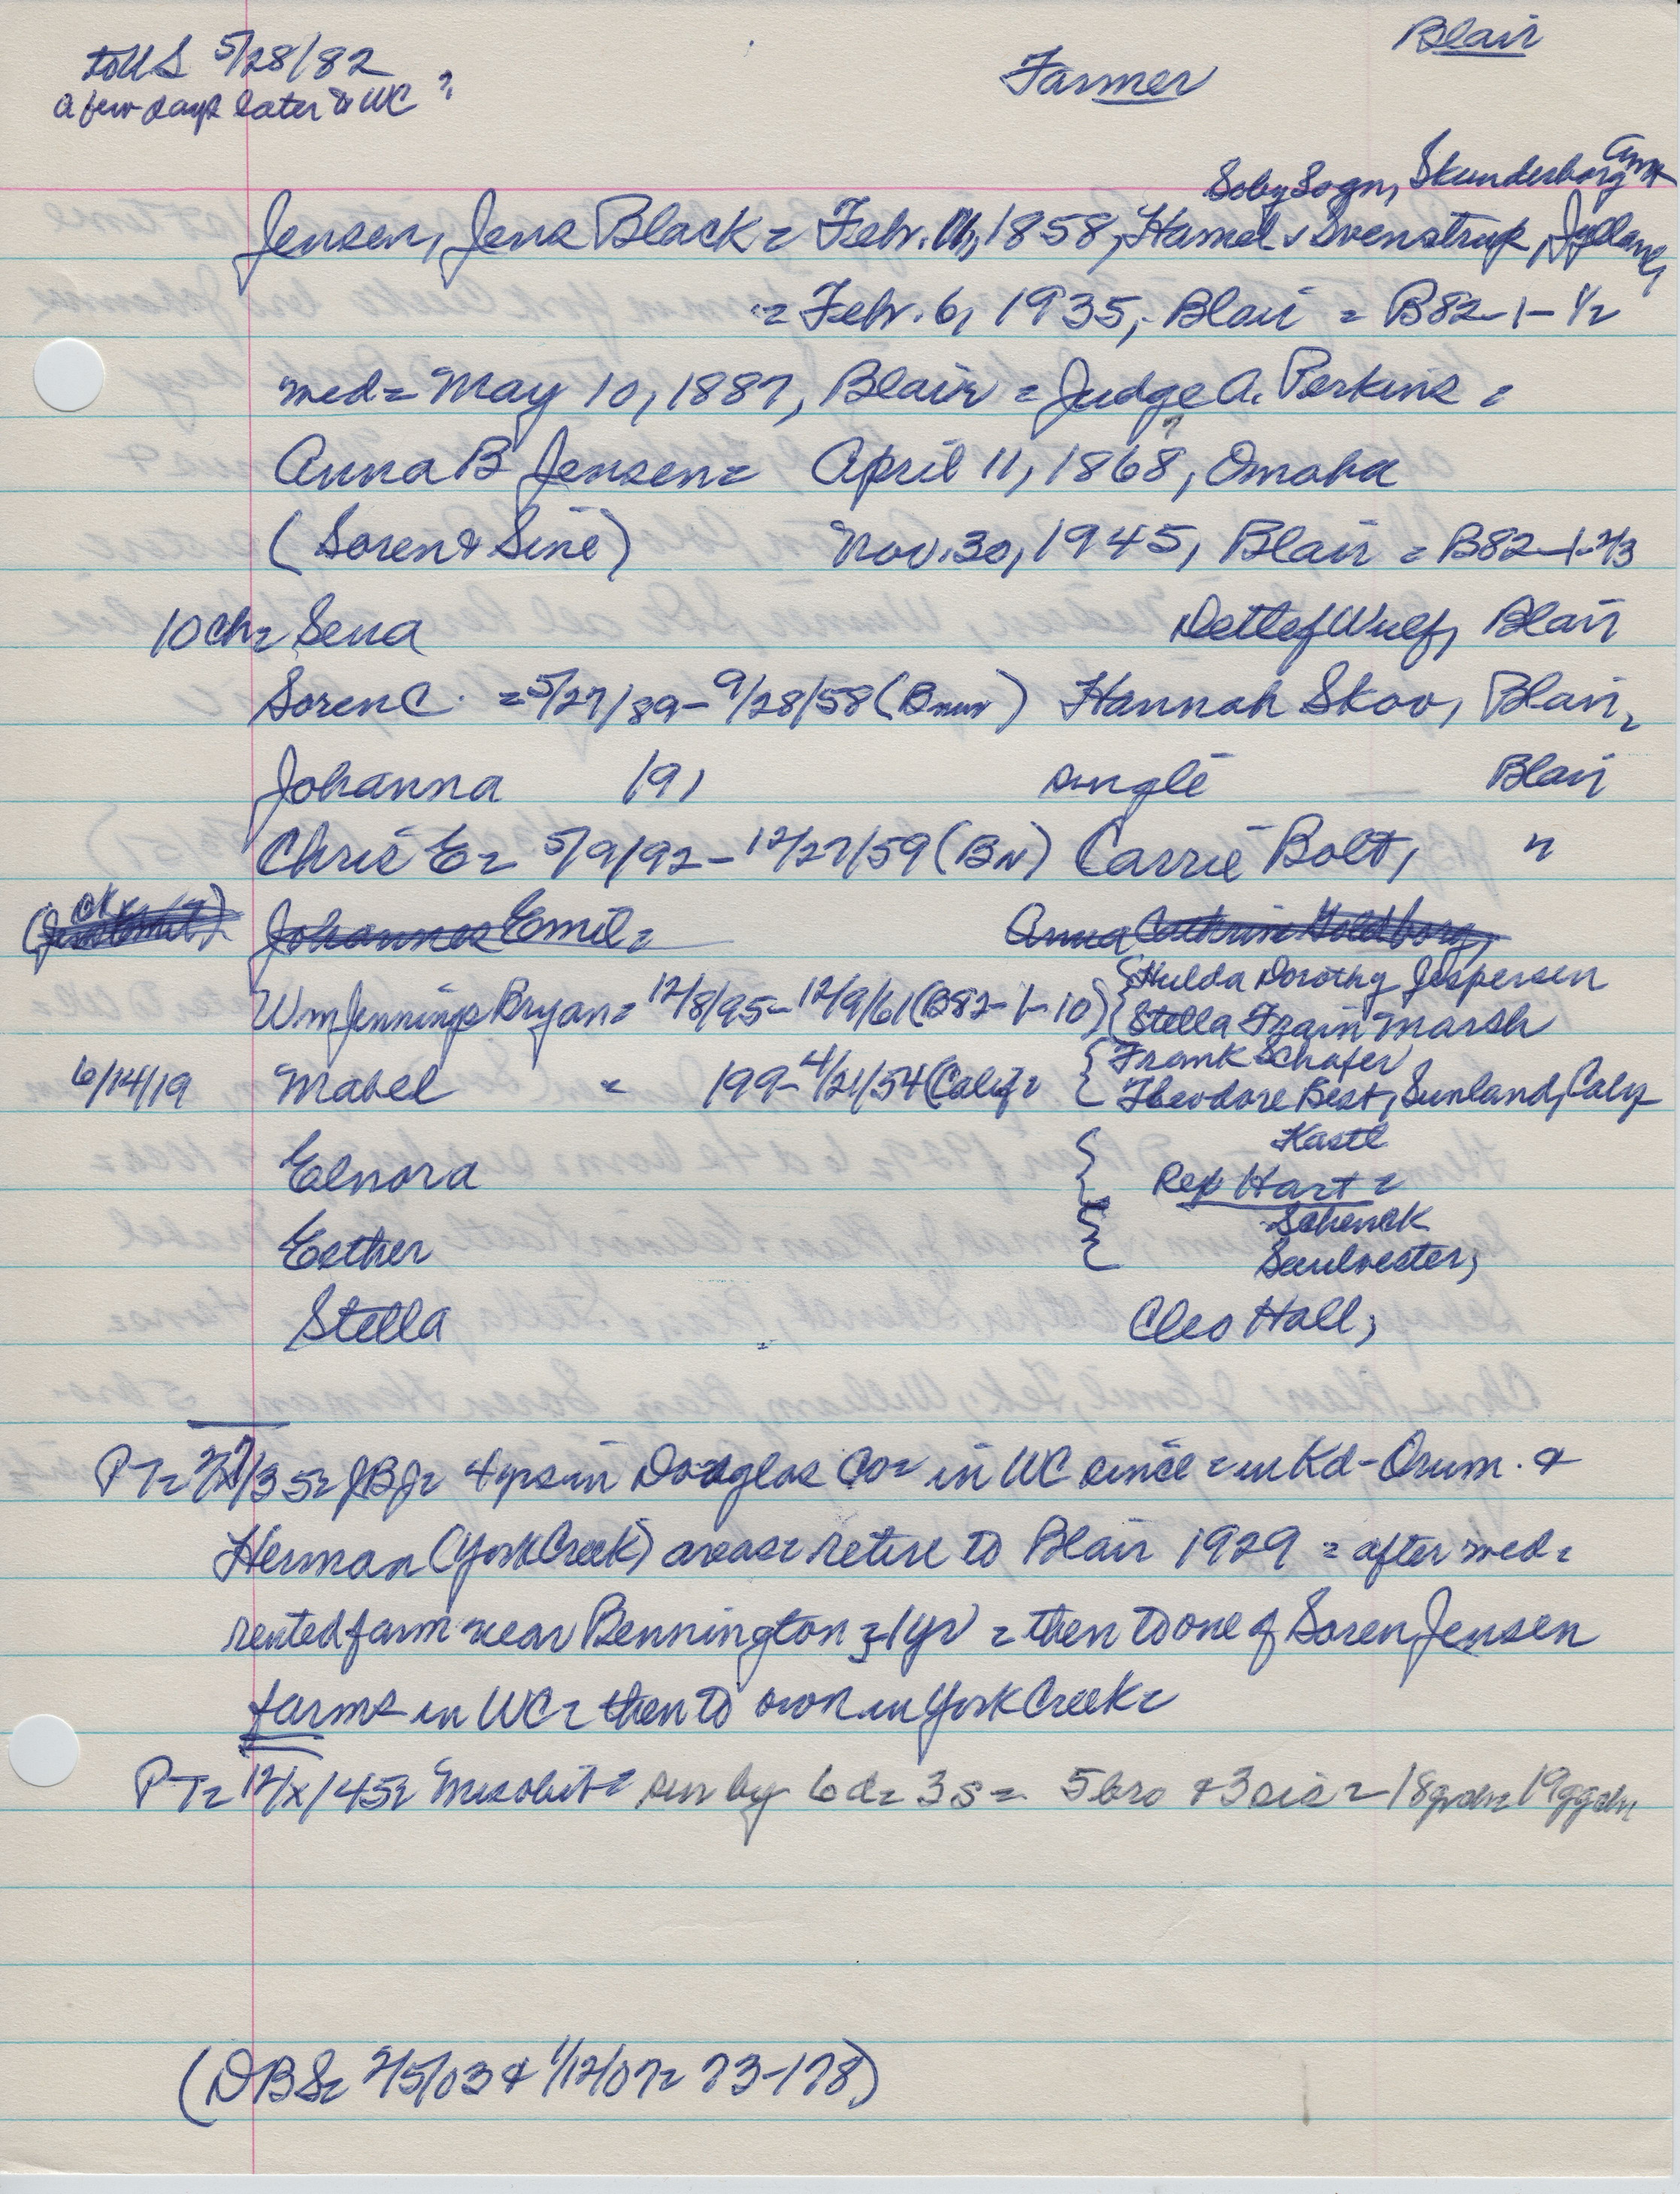 Blair
to US 5/28/82
Farmer
a few days later to WC ?
Soby Sogn, Skanderborg Amt
Jensen, Jens Black = Febr. 16, 1858, Hamel v Svenstrup, Jylland,
= Febr. 6, 1935, Blair = B82-1-1/2
med = May 10, 1887, Blair = Judge A. Perkins =
Anna B Jensen = April 11, 1868, Omaha
?
(Soren & Sine) Nov. 30, 1945, Blair = B82-1-2/3
10 ch = Sena Detlef Wulf, Blair
Soren C. = 5/27/89 - 9/28/58 (Bnw) Hannah Skov, Blair,
Johanna 191 single Blair
Chris E = 5/9/92 - 12/27/59 (BN) Carrie Bolt, "
ok
Johannes Emil = Anna Cathrine Goldborg,
Wm Jennings Bryan = 12/8/95 - 12/9/61 (B82-1-10) { Hulda Dorothy Jespersen
{ Stella Frain Marsh
6/14/19 Mabel = 199 - 4/21/54 (Calif = { Frank Schafer
Theodore Best, Sunland, Calif
Elnora { Kastl
Rex Hart =
Esther { Schenck
Saulvester,
Stella Cleo Hall,
PT = 2/7/35 = JBJ = 4 yrs in Douglas Co = in WC since = in Kd - Orum. &
Herman (York Creek) areas = retire to Blair 1929 = after med =
rented farm near Bennington = 1 yr = then to one of Soren Jensen
farms in WC = then to own in York Creek =
PT = 12/x/45 = Mrs obit = sur by 6 d = 3 s = 5 bro & 3 sis = 18 grch = 19 ggch
(DBS = 2/5/03 & 1/12/07 = 73-178)